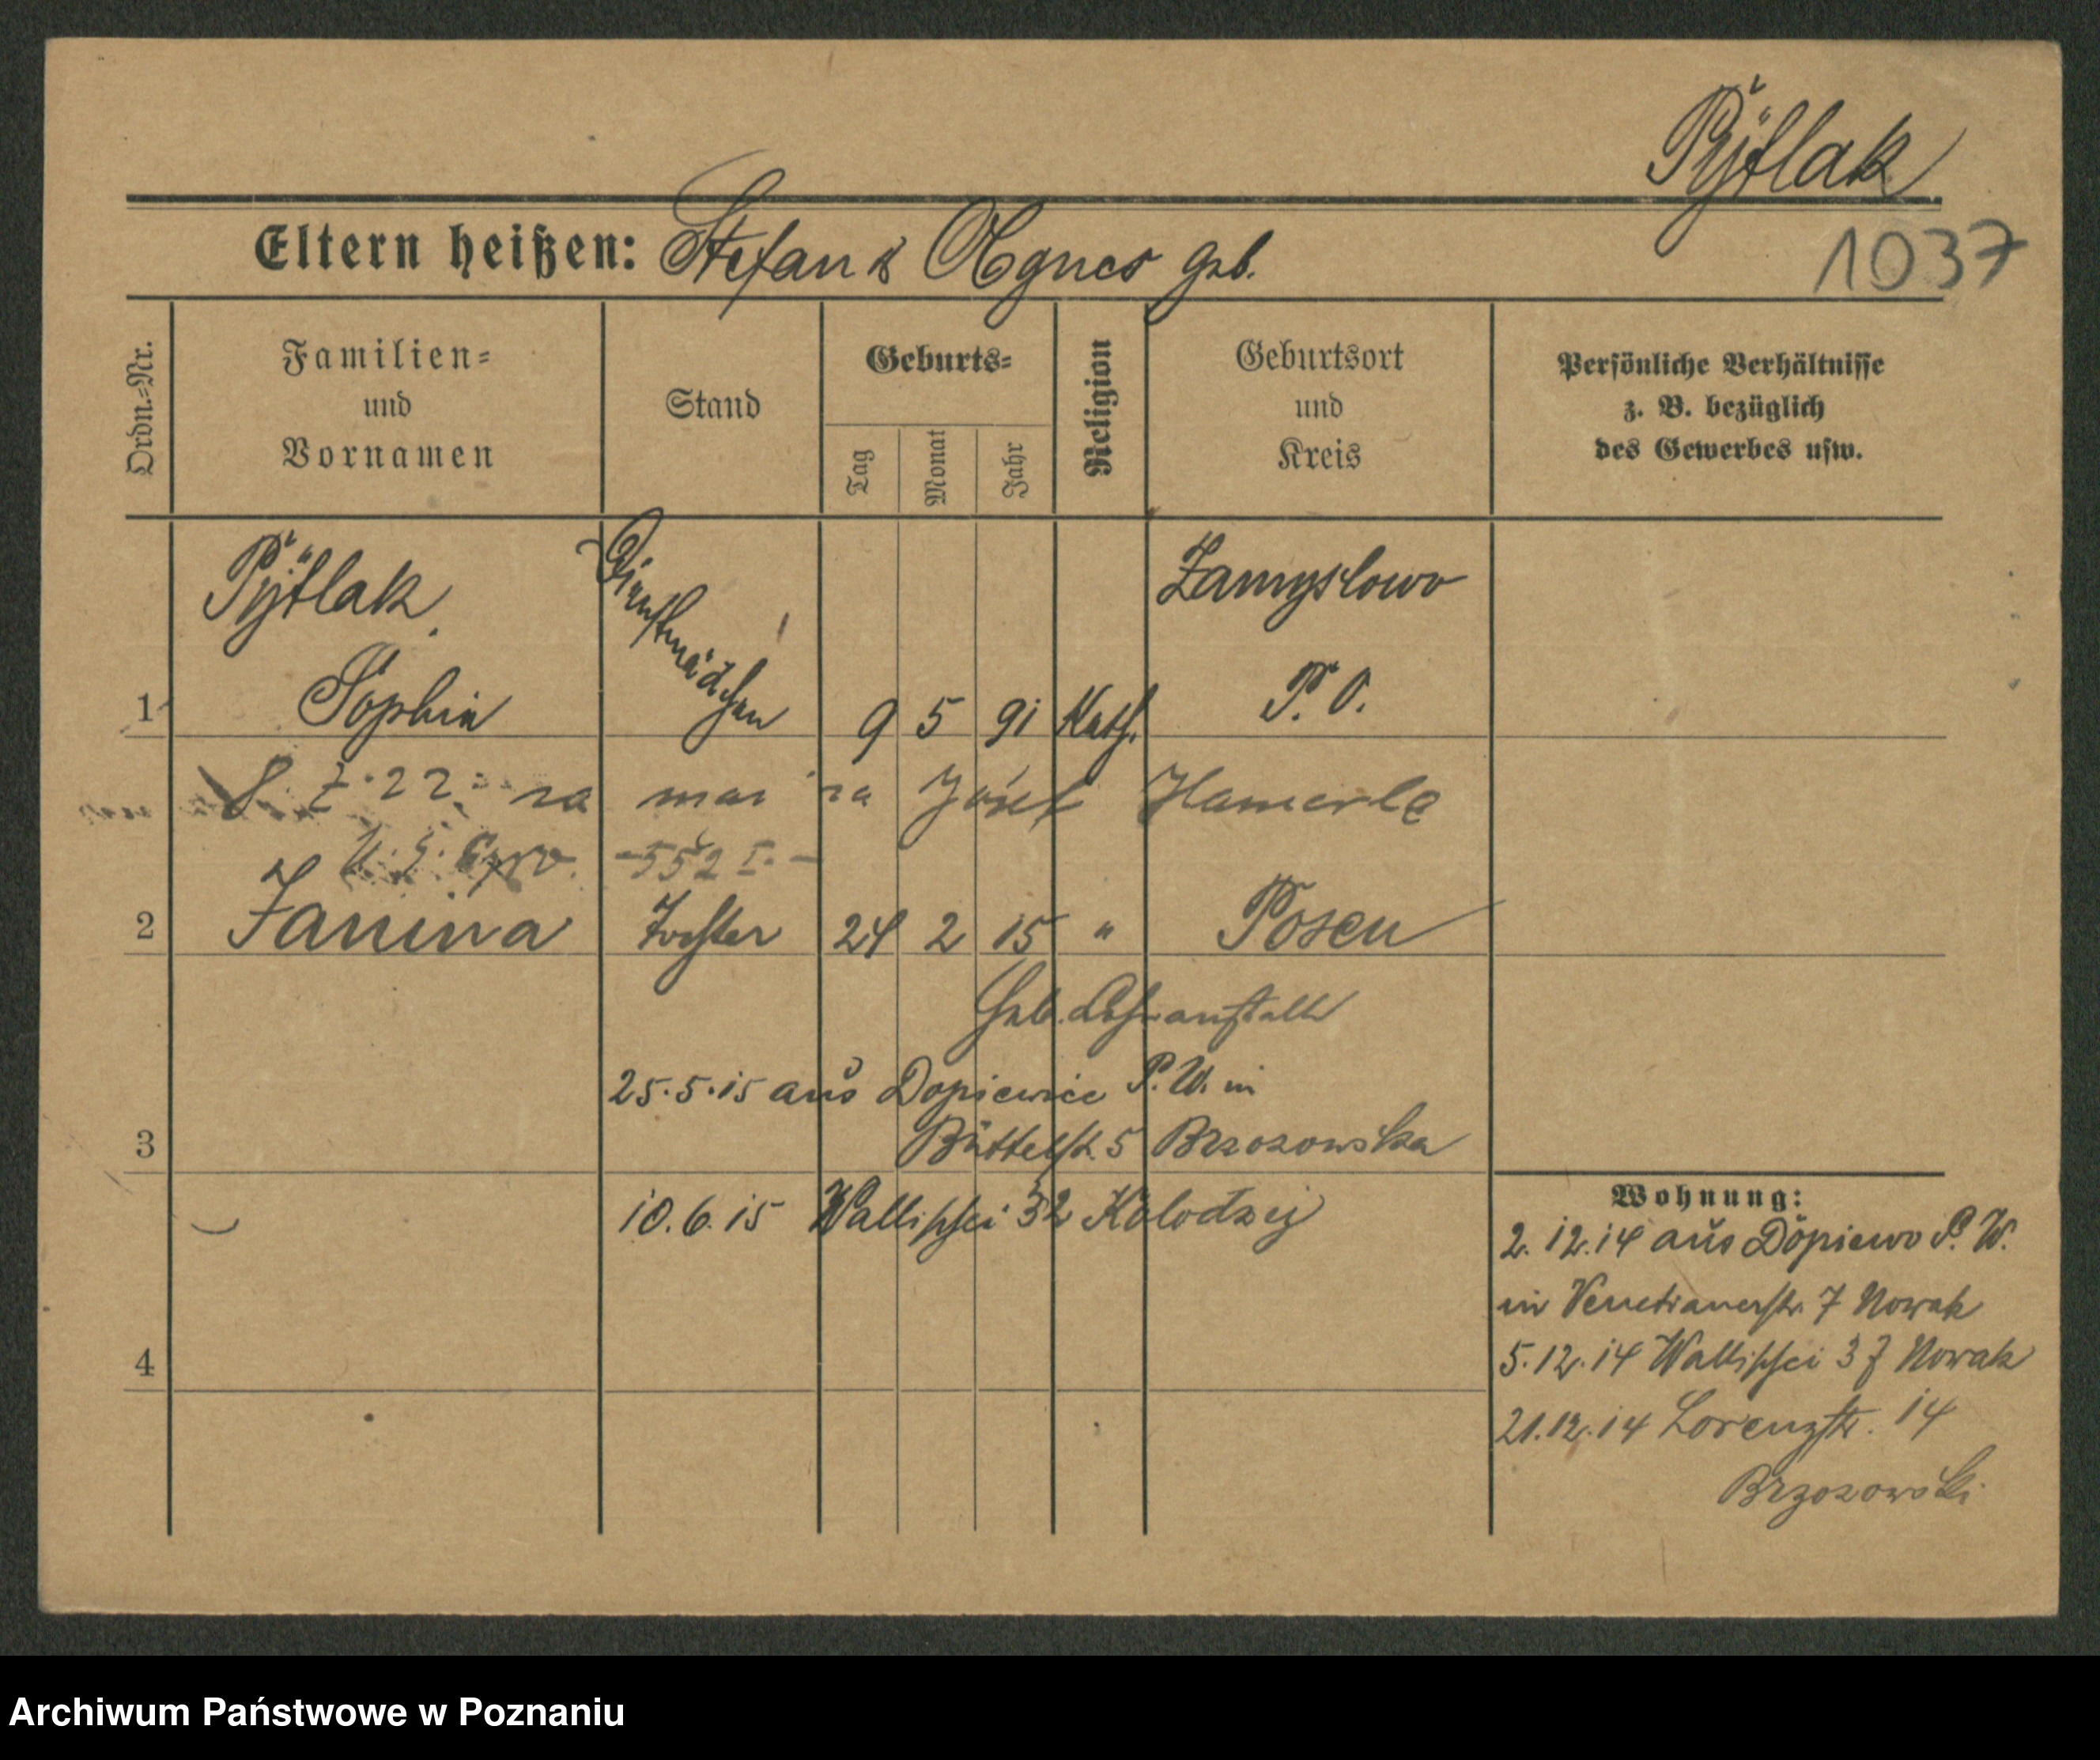 Pytlak
Eltern heißen: Stefan & Agnes geb.
1037
Ordn.=Nr.
Familien=
und
Vornamen
Stand
Geburts=
Tag
Monat
Jahr
Religion
Geburtsort
und
Kreis
Persönliche Verhältnisse
z. B. bezüglich
des Gewerbes usw.
Pytlak,
Dienstmädchen
Zamyslowo
1 Sophia 9 5 91 Kath. P. O.
22 za mai za Józef Hamerla
552 I.
2 Janina Tochter 24 2 15 " Posen
Geb.
25.5.15 aus Dopiewiec P. W. in
3 Büttelstr. 5 Brzozowska
10.6.15 Wallischei 32 Kolodzej
4
Wohnung:
2.12.14 aus Dopiewo P. W.
in Venetianerstr. 7 Nowak
5.12.14 Wallischei 37 Nowak
21.12.14 Lorenzstr. 14
Brzozowski
Archiwum Państwowe w Poznaniu